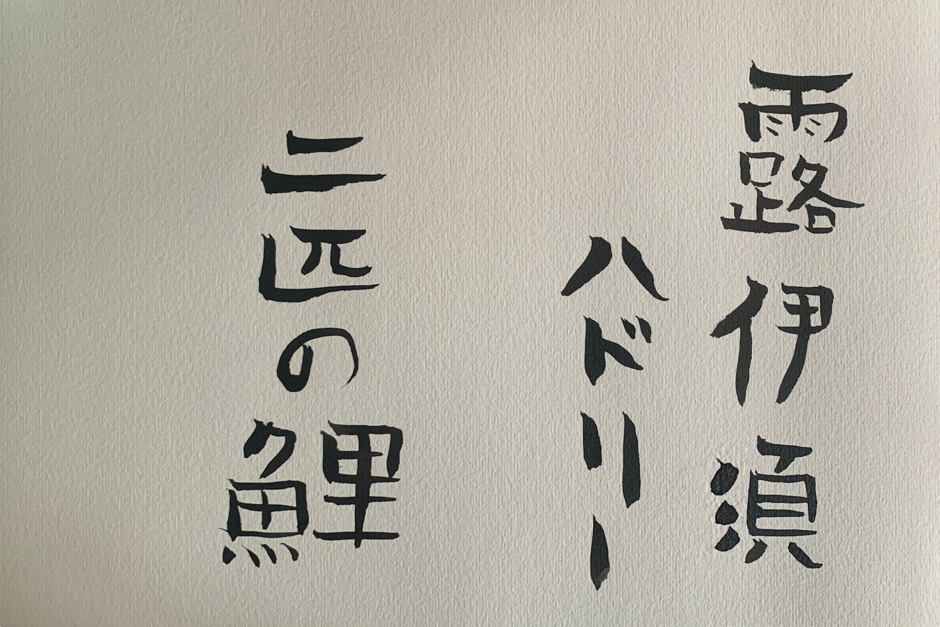 露伊須
ハドリー
二匹の鯉